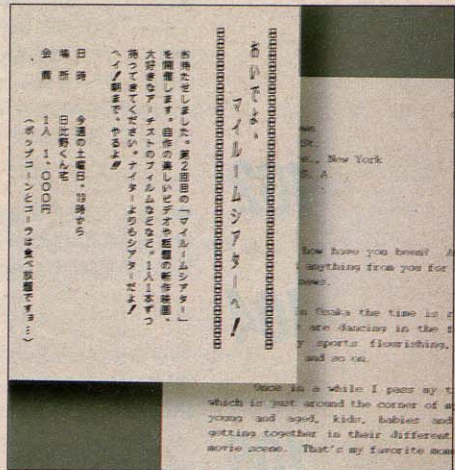 おいでよ、
マイルームシアターへ!
お待たせしました。第2回目の「マイルームシアター」
を開催します。自作の楽しいビデオや話題の新作映画、
大好きなアーチストのフィルムなどなど。1人1本ずつ
持ってきてください。ナイターよりもシアターだよ!
ヘイ!朝まで、やるよ!!
日 時 今週の土曜日・19時から
場 所 日比野くん宅
会 費 1人 1,000円
(ポップコーンとコーラは食べ放題ですョ…)
St.
New York
S. A.
how have you been?
anything from you for
news.
in Osaka the time is
are dancing in the
sports flourishing,
and so on.
Once in a while I pass my
which is just around the corner of
young and aged, kids, babies and
getting together in their different
movie scene. That's my favorite